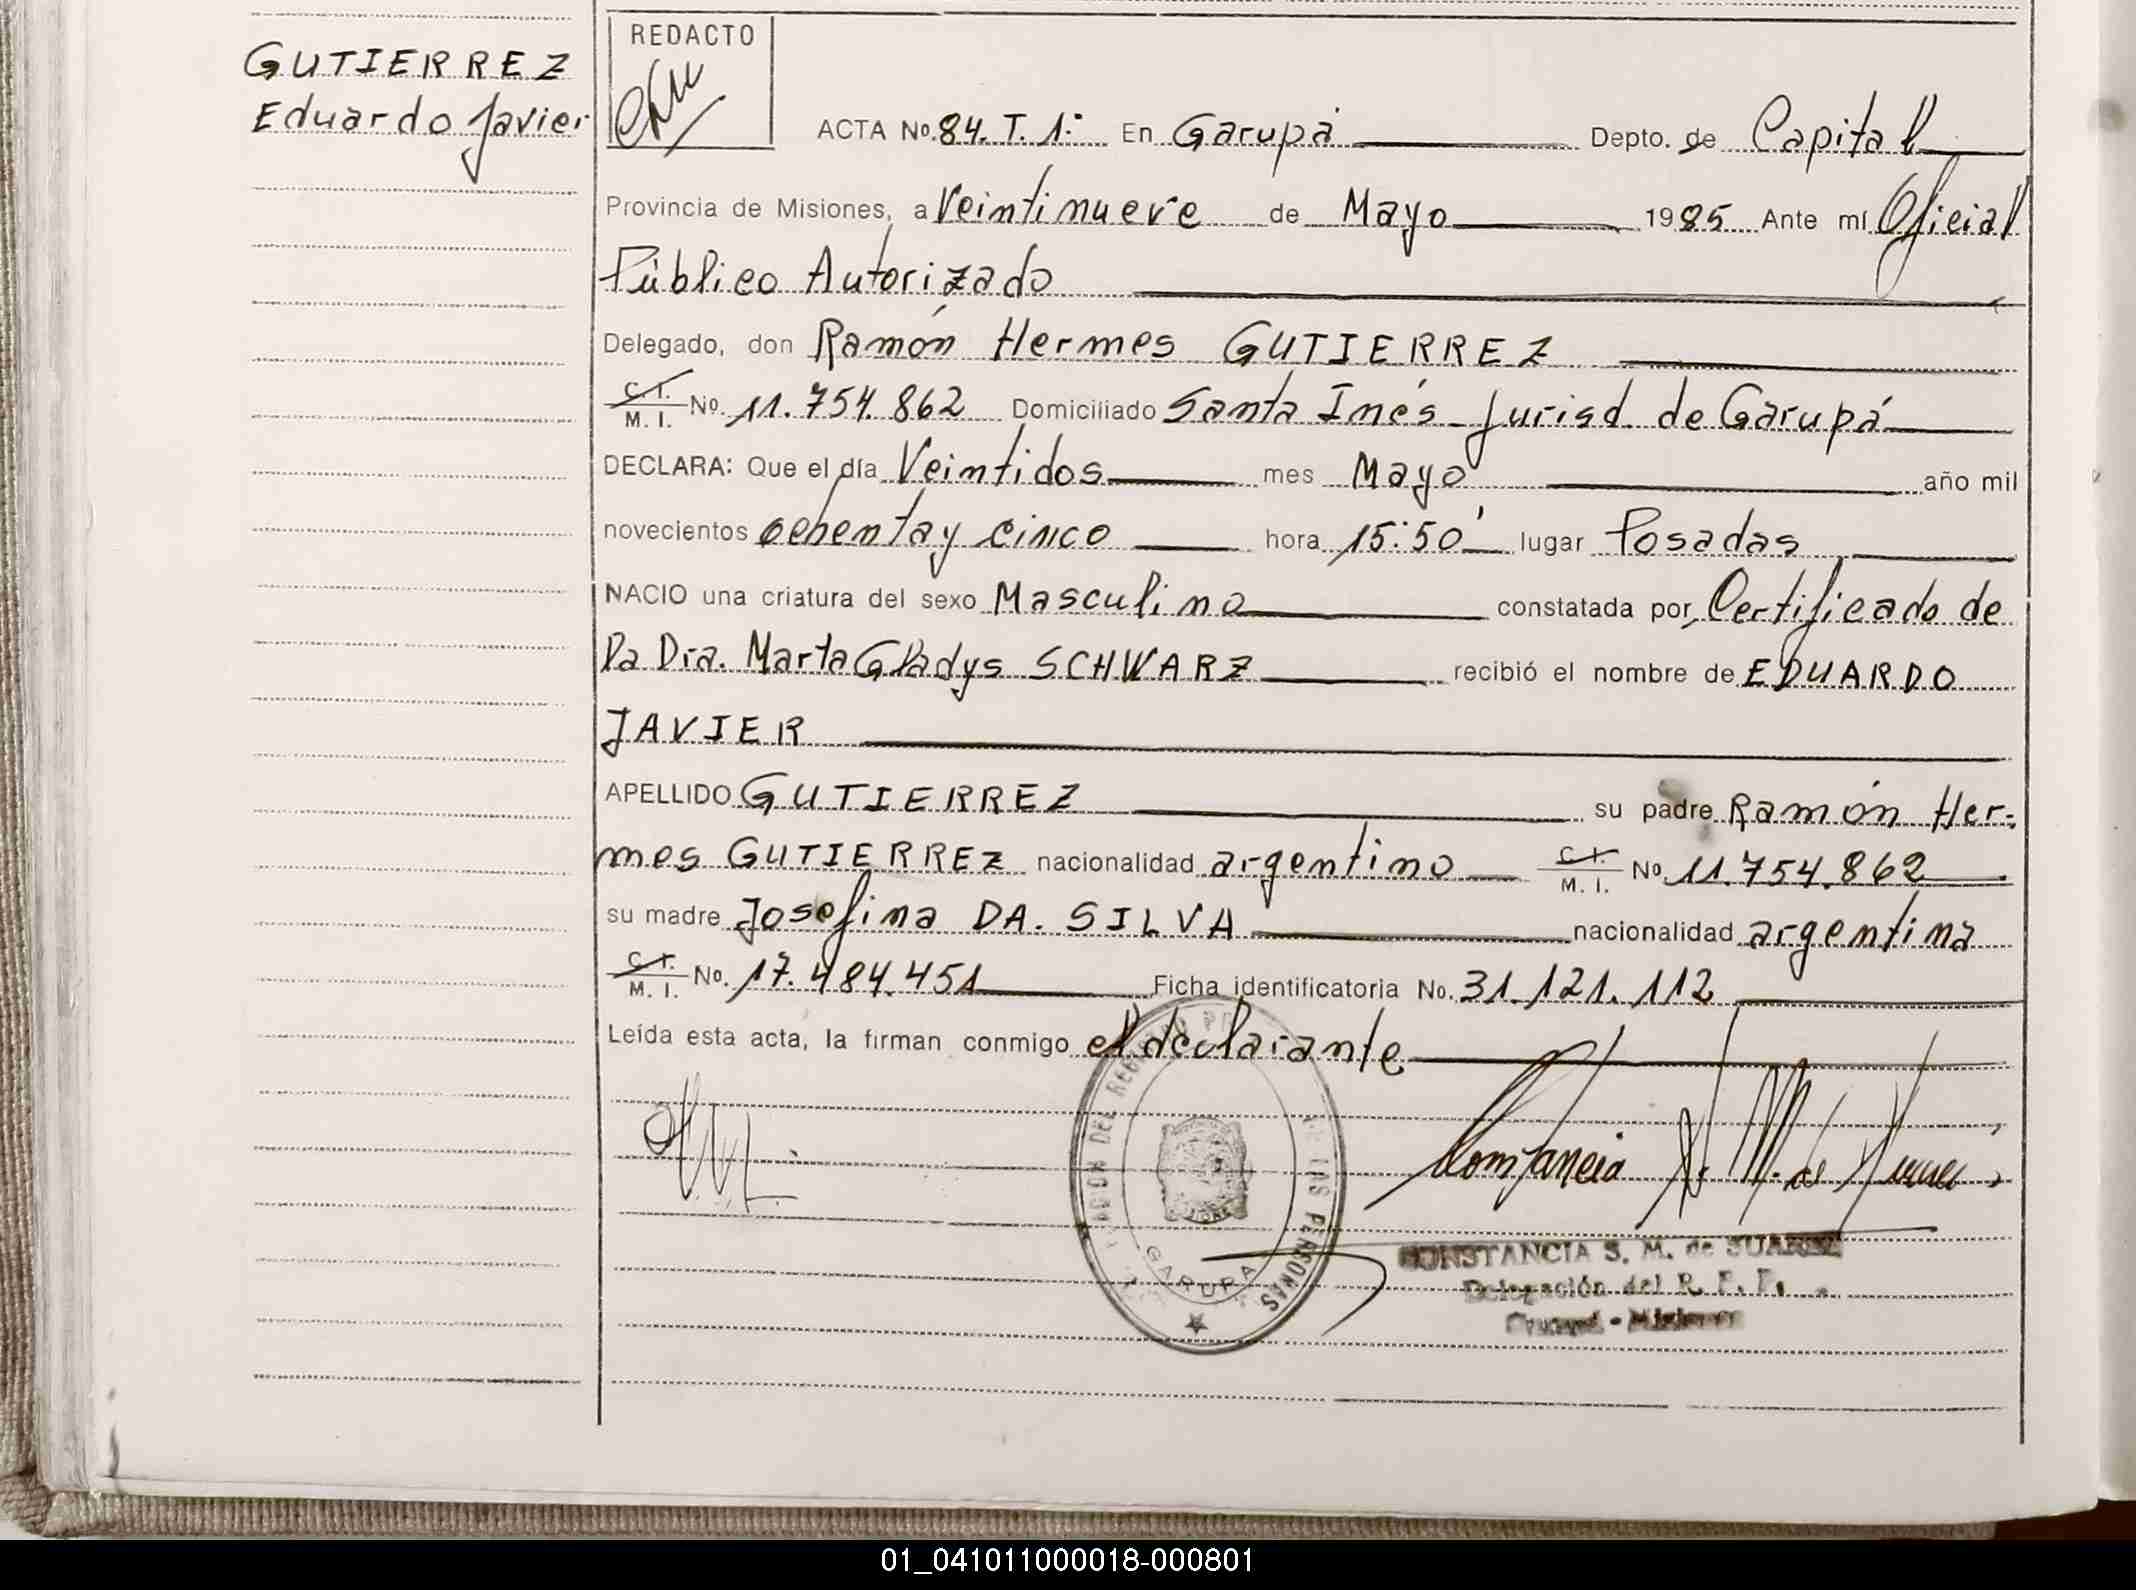 GUTIERREZ
Eduardo Javier
REDACTO
ACTA No. 84. T. 1.° En Garupá Depto. de Capital
Provincia de Misiones, a Veintinueve de Mayo 1985 Ante mí Oficial
Público Autorizado
Delegado, don Ramón Hermes GUTIERREZ
C. I. M. I. No. 11.754.862 Domiciliado Santa Inés - Jurisd. de Garupá
DECLARA: Que el día Veintidos mes Mayo año mil
novecientos ochenta y cinco hora 15:50' lugar Posadas
NACIO una criatura del sexo Masculino constatada por Certificado de
la Dra. Marta Gladys SCHWARZ recibió el nombre de EDUARDO
JAVIER
APELLIDO GUTIERREZ su padre Ramón Her-
mes GUTIERREZ nacionalidad argentino C. I. M. I. No. 11.754.862
su madre Josefina DA. SILVA nacionalidad argentina
C. I. M. I. No. 17.484.451 Ficha identificatoria No. 31.121.112
Leída esta acta, la firman conmigo el declarante
DEL REGISTRO DE LAS PERSONAS
GARUPA
Constancia S. M. de Suarez
CONSTANCIA S. M. de SUAREZ
Delegación del R. P. P.
Garupá - Misiones
01_041011000018-000801